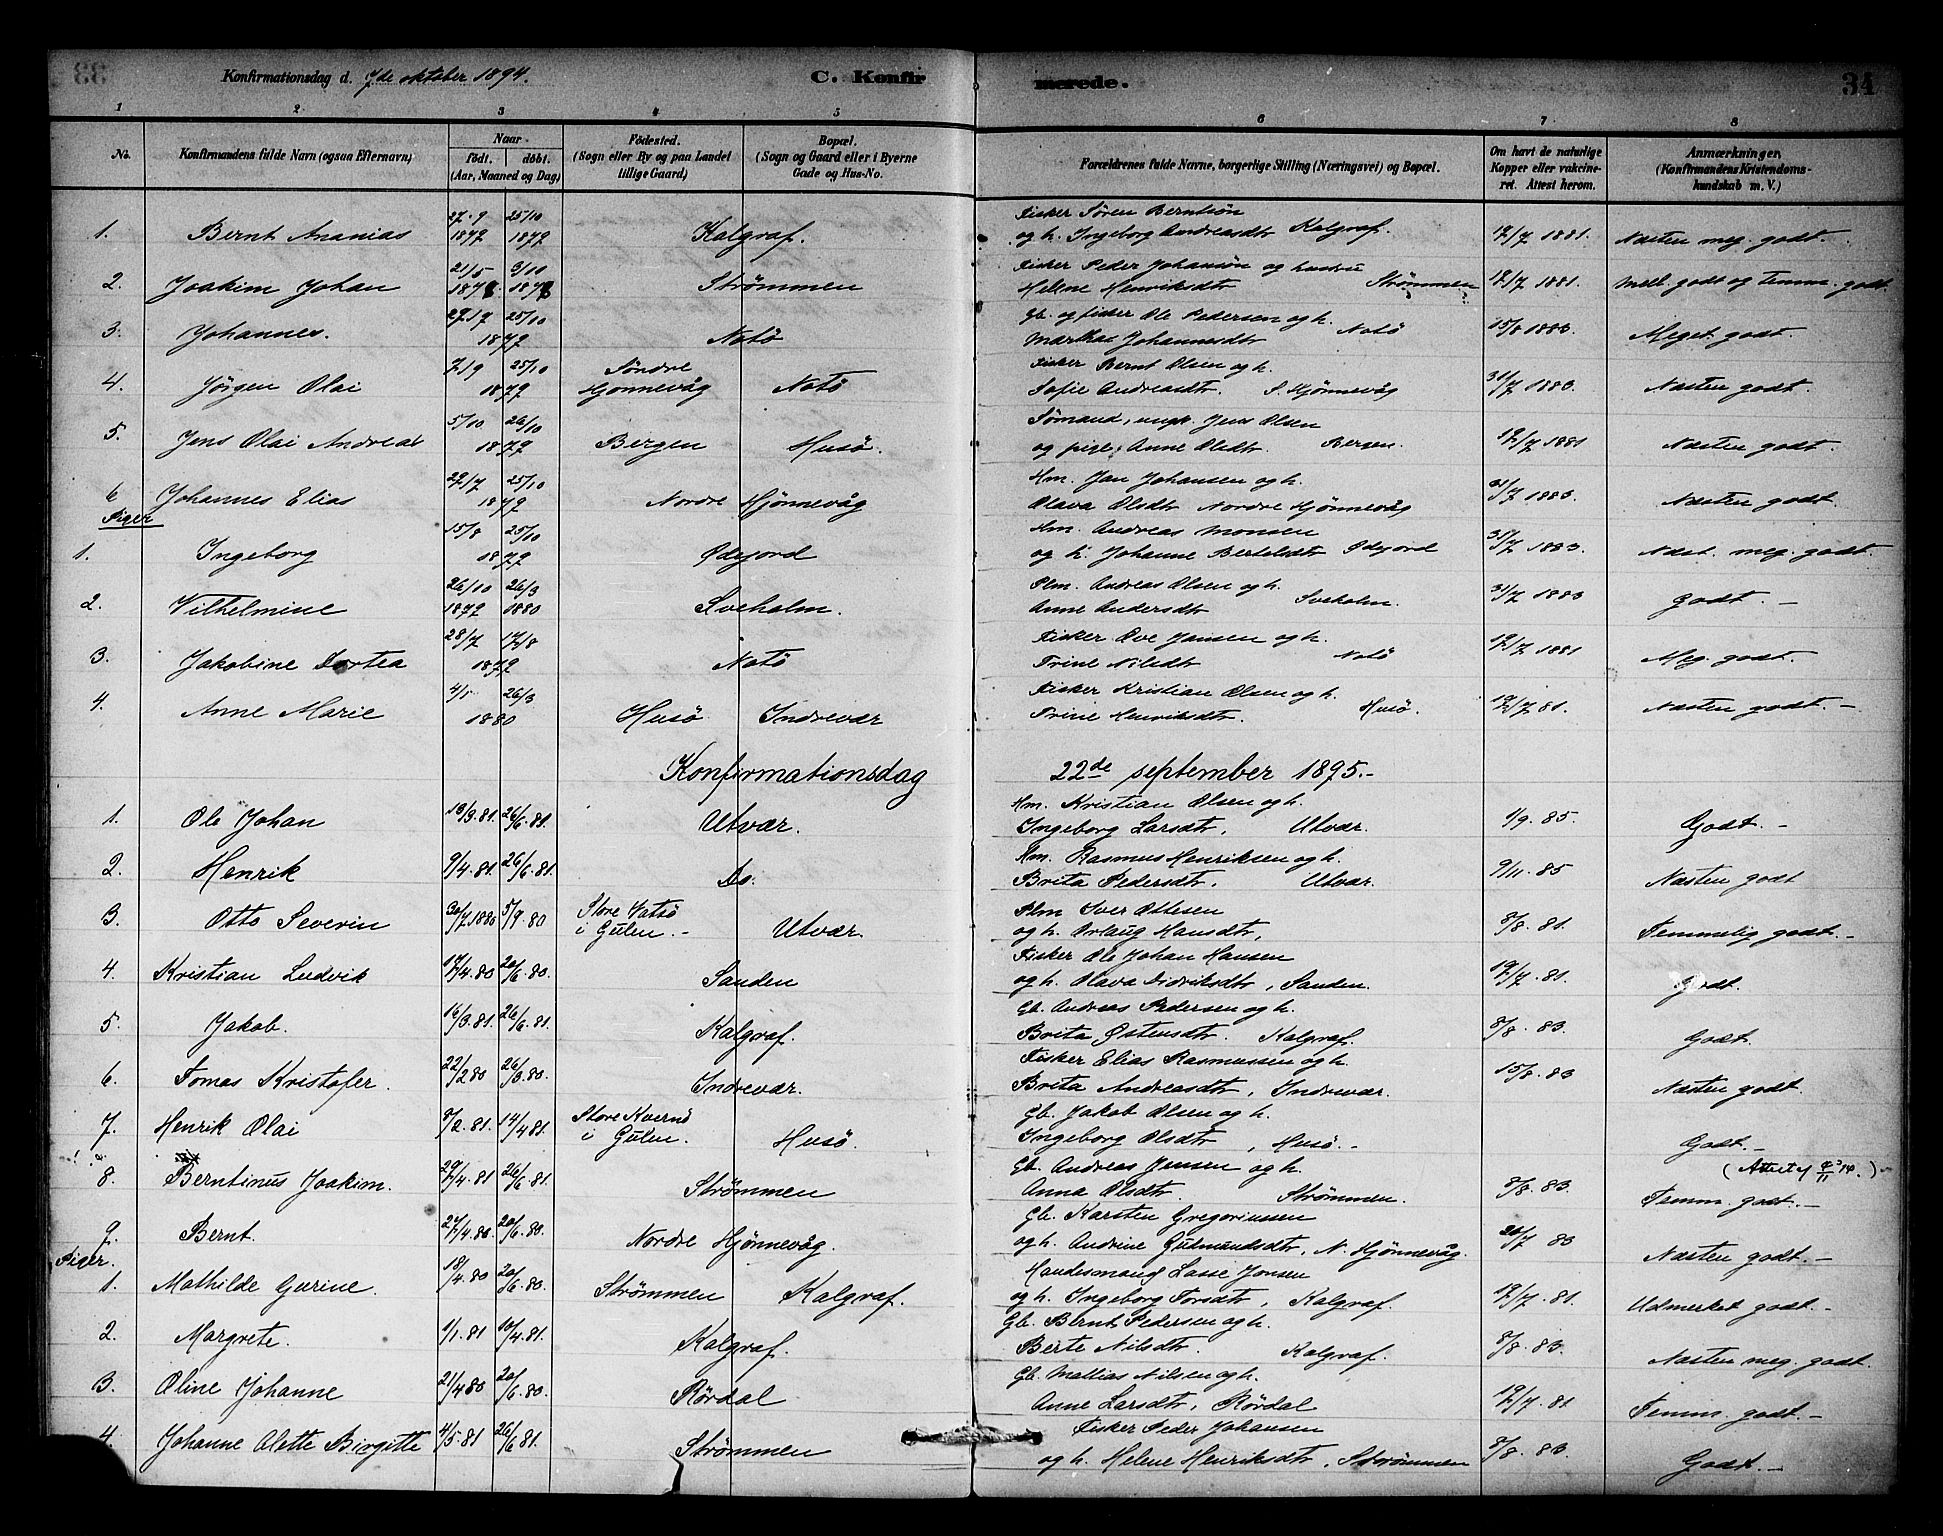 33 Konfirmationsdag d. 7de oktober 1894. C. Konfirmerede. 34
1 2 3 4 5 6 7 8
No. Konfirmandens fulde Navn (ogsaa Efternavn) Naar födt. döbt. (Aar, Maaned og Dag) Födested. (Sogn eller By og paa Landet tillige Gaard.) Bopæl. (Sogn og Gaard eller i Byerne Gade og Hus-No. Forældrenes fulde Navne, borgerlige Stilling (Næringsvei) og Bopæl. Om havt de naturlige Kopper eller vakcineret. Attest herom. Anmærkninger, (Konfirmandens Kristendomskundskab m. V.)
1. Bernt Ananias 27-9 1879 25/10 1879 Kalgraf. Fisker Søren Berntsøn og h. Ingeborg Andreasdtr Kalgraf. 19/7 1881. Næsten meg. godt.
2. Joakim Johan 21/5 3/10 Strømmen Fisker Peder Johansøn og hustru Helene Henriksdtr Strømmen 19/7 1881. Mell. godt og temm. godt.
3. Johannes. 25/10 1879 Notö Gb. og fisker Ole Pedersen og h. Marthe Johannesdtr Notö 15/8 1883. Meget godt.
4. Jørgen Olai 7/9 25/10 1879 Söndre Hjønnevåg Notö Fisker Bernt Olsen og h. Sofie Andreasdtr. S. Hjønnevåg 31/7 1883. Næsten godt.
5. Jens Olai Andreas 5/10 26/10 1879 Bergen Husö. Sömand, ungk. Jens Olsen og pige, Anne Olsdtr. Bergen. 19/7 1881 Næsten godt.
6 Johannes Elias 25/10 1879 Nordre Hjønnevåg Hm. Jan Johansen og h. Olava Olsdtr Nordre Hjønnevåg 31/7 1883. Næsten godt.
Piger
1. Ingeborg 15/8 25/10 1879 Ødejord Hm. Andreas Monsen og h. Johanne Berteldtr Ødejord 31/7 1883. Næst. meg. godt.
2. Vilhelmine 26/10 1879 26/3 1880 Sveholm. Plm. Andreas Olsen og h. Anne Andersdtr Sveholm. 31/7 1883 Godt. -
3. Jakobine Dortea 28/7 17/8 1879 Notö Fisker Ove Jansen og h. Trine Nilsdtr Notö 19/7 1881 Meg. godt.
4. Anne Marie 4/1 26/3 1880 Husö Indrevær Fisker Kristian Olsen og h. Trine Henriksdtr. Husö. 19/7 81. Næsten godt. -
Konfirmationsdag 22de september 1895.-
1. Ole Johan 13/3.81. 26/6.81. Utvær. Hm. Kristian Olsen og h. Ingeborg Larsdtr, Utvær. 1/9.85. Godt. -
2. Henrik 9/4.81. 26/6.81. Do. Hm. Rasmus Henriksen og h. Brita Pedersdtr. Utvær. 9/11.85 Næsten godt
3. Otto Severin 30/7.1880 5/9.80 Store Vatsö i Gulen. - Utvær. Plm Iver Ottesen og h. Orlaug Hansdtr, 8/8.81. Temmelig godt. -
4. Kristian Ludvik 17/4.80 20/6.80. Sanden Fisker Ole Johan Hansen og h. Olava Didriksdtr, Sanden. 19/7.81. Godt.
5. Jakob. 16/3.81. 26/6.81. Kalgraf. Gb. Andreas Pedersen og h. Brita Østensdtr. Kalgraf. 8/8.83. Godt.
6. Tomas Kristofer. 22/2 80 26/3.80. Indrevær. Fisker Elias Rasmussen og h. Brita Andreasdtr, Indrevær. 15/8.83 Næsten godt.
7. Henrik Olai 8/2.81. 14/4 81. Store Kvernö i Gulen. Husö. Gb. Jakob Olsen og h. Ingeborg Olsdtr, Husö. - Godt. -
8. Berntinus Joakim. 29/4.81 26/6.81. Strømmen Gb. Andreas Jensen og h. Anna Olsdtr. Strømmen. 8/8.83. Temm. godt. -
9. Bernt. 27/4.80. 20/6.80. Nordre Hjønnevåg. Gb. Karsten Gregoriussen og h. Andrine Gulmundsdtr, N. Hjønnevåg. 83 Næsten godt. -
Piger.
1. Mathilde Gurine. 18/4.80 20/6.80. Strømmen Kalgraf. Handesmand Lasse Jonsen og h. Ingeborg Torsdtr, Kalgraf. 19/7.81. Udmerket godt. -
2. Margrete. 1/1.81 10/4.81. Kalgraf. Gb. Bernt Pedersen og h. Berte Nilsdtr. Kalgraf. 8/8.83. Næsten meg. godt.
3. Oline Johanne 21/4 80 20/6.80. Rördal Gb. Mattias Nilsen og h. Anne Larsdtr, Rördal 19/7.81 Temm. godt. -
4. Johanne Olette Birgitte 4/5.81 26/6 81. Strømmen Fisker Peder Johansen og h. Helene Henriksdtr, Strømmen 8/8.83. Godt. -